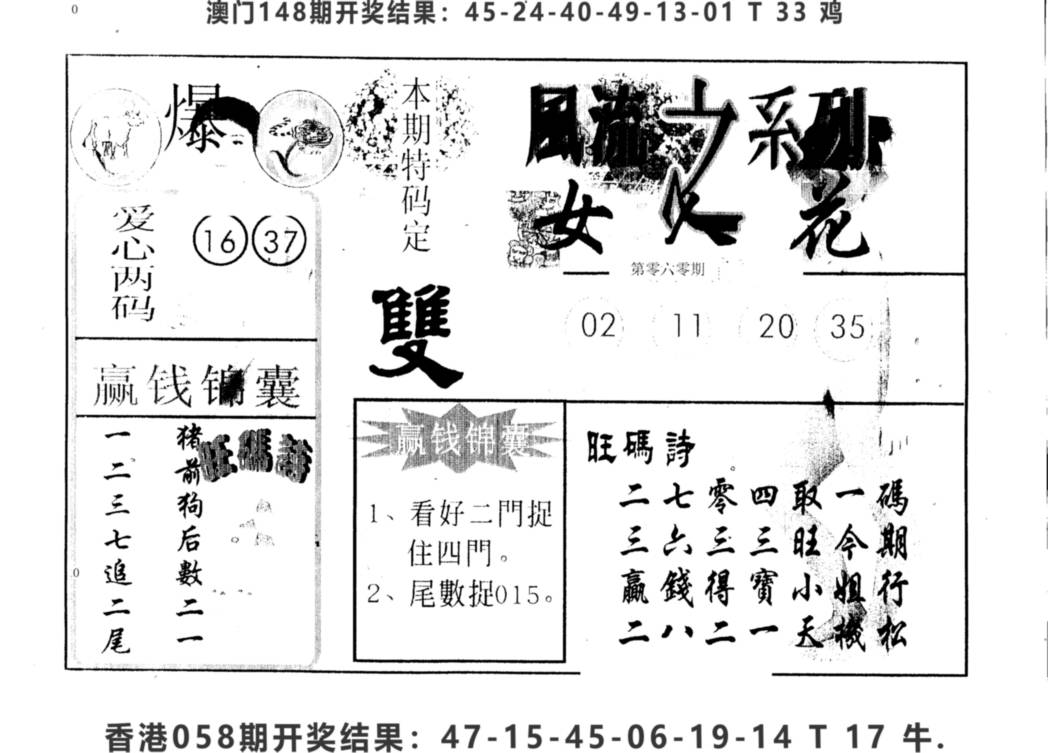 0
澳门148期开奖结果：45-24-40-49-13-01 T 33 鸡
爆
爱心两码
16 37
赢钱锦囊
旺碼詩
猪前狗后數二一
一二三七追二尾
0
本期特码定
雙
赢钱锦囊
1、看好二門捉
住四門。
2、尾數捉015。
風流 系列
女 花
第零六零期
02 11 20 35
旺碼詩
二七零四取一碼
三六三三旺今期
贏錢得寶小姐行
二八二一天機松
香港058期开奖结果：47-15-45-06-19-14 T 17 牛.